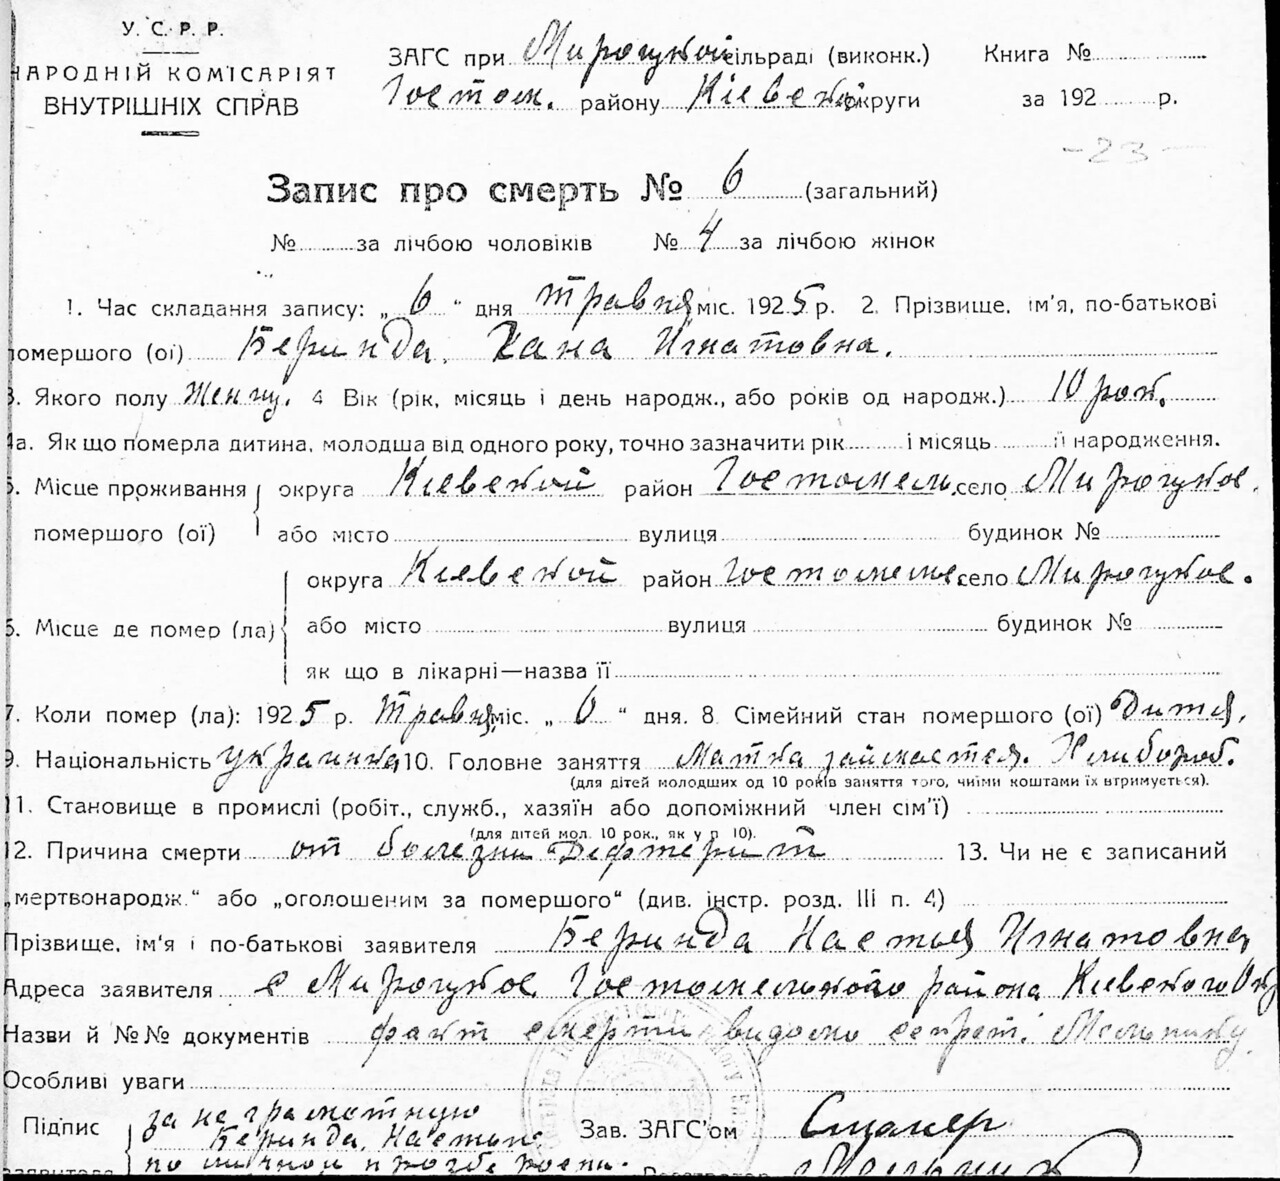 У. С. Р. Р.
НАРОДНІЙ КОМІСАРІЯТ
ВНУТРІШНІХ СПРАВ
ЗАГС при Мироцкой сільраді (виконк.)
Гостом. району Кіевской округи
Книга №
за 192 р.
-23-
Запис про смерть № 6 (загальний)
№ за лічбою чоловіків № 4 за лічбою жінок
1. Час складання запису: „ 6 “ дня травня міс. 1925 р. 2. Прізвище, ім'я, по-батькові
помершого (ої) Беринда Хана Игнатовна.
3. Якого полу Женщ. 4 Вік (рік, місяць і день народж., або років од народж.) 10 рок.
4а. Як що померла дитина, молодша від одного року, точно зазначити рік і місяць її народження.
5. Місце проживання округа Кіевской район Гостомель. село Мироцкое.
помершого (ої) або місто вулиця будинок №
округа Кіевской район Гостомель. село Мироцкое.
6. Місце де помер (ла) або місто вулиця будинок №
як що в лікарні—назва її
7. Коли помер (ла): 1925 р. Травня міс. „ 6 “ дня. 8 Сімейний стан помершого (ої) Дитя.
9. Національність украинка 10. Головне заняття Матка займается. Хлибороб.
(для дітей молодших од 10 років заняття того, чиїми коштами їх втримується).
11. Становище в промислі (робіт., служб., хазяїн або допоміжний член сім'ї)
(для дітей мол. 10 рок., як у п 10).
12. Причина смерти от болезни Дефтерит 13. Чи не є записаний
„мертвонародж.“ або „оголошеним за помершого“ (див. інстр. розд. III п. 4)
Прізвище, ім'я і по-батькові заявителя Беринда Настья Игнатовна
Адреса заявителя с Мироцкое Гостомельского района Кіевского Окр
Назви й №№ документів факт смерти видомо секрет. Мельнику
Особливі уваги
Підпис за неграмотную
Беринда Настья
заявителя по личной прозбе
Зав. ЗАГС'ом
Реєстратор Мельник